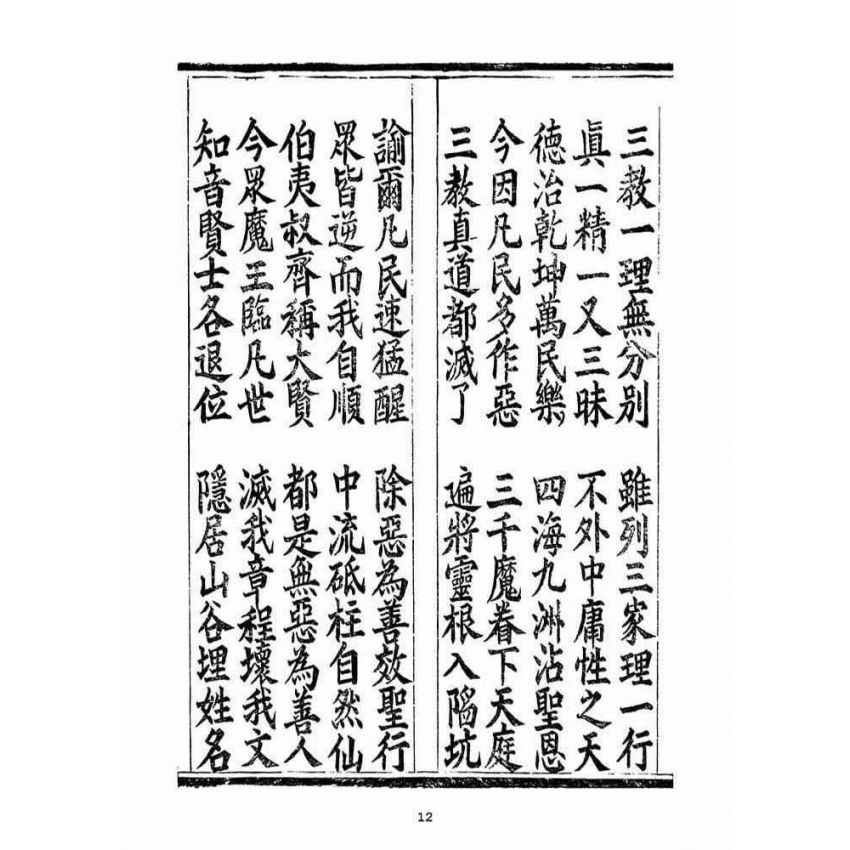 三教一理無分別　雖列三家理一行
眞一精一又三昧　不外中庸性之天
德治乾坤萬民樂　四海九洲沾聖恩
今因凡民多作惡　三千魔眷下天庭
三教真道都滅了　遍將靈根入陷坑
諭爾凡民速猛醒　除惡為善效聖行
眾皆逆而我自順　中流砥柱自然仙
伯夷叔齊稱大賢　都是無惡為善人
今眾魔王臨凡世　滅我章程壞我文
知音賢士各退位　隱居山谷埋姓名
12